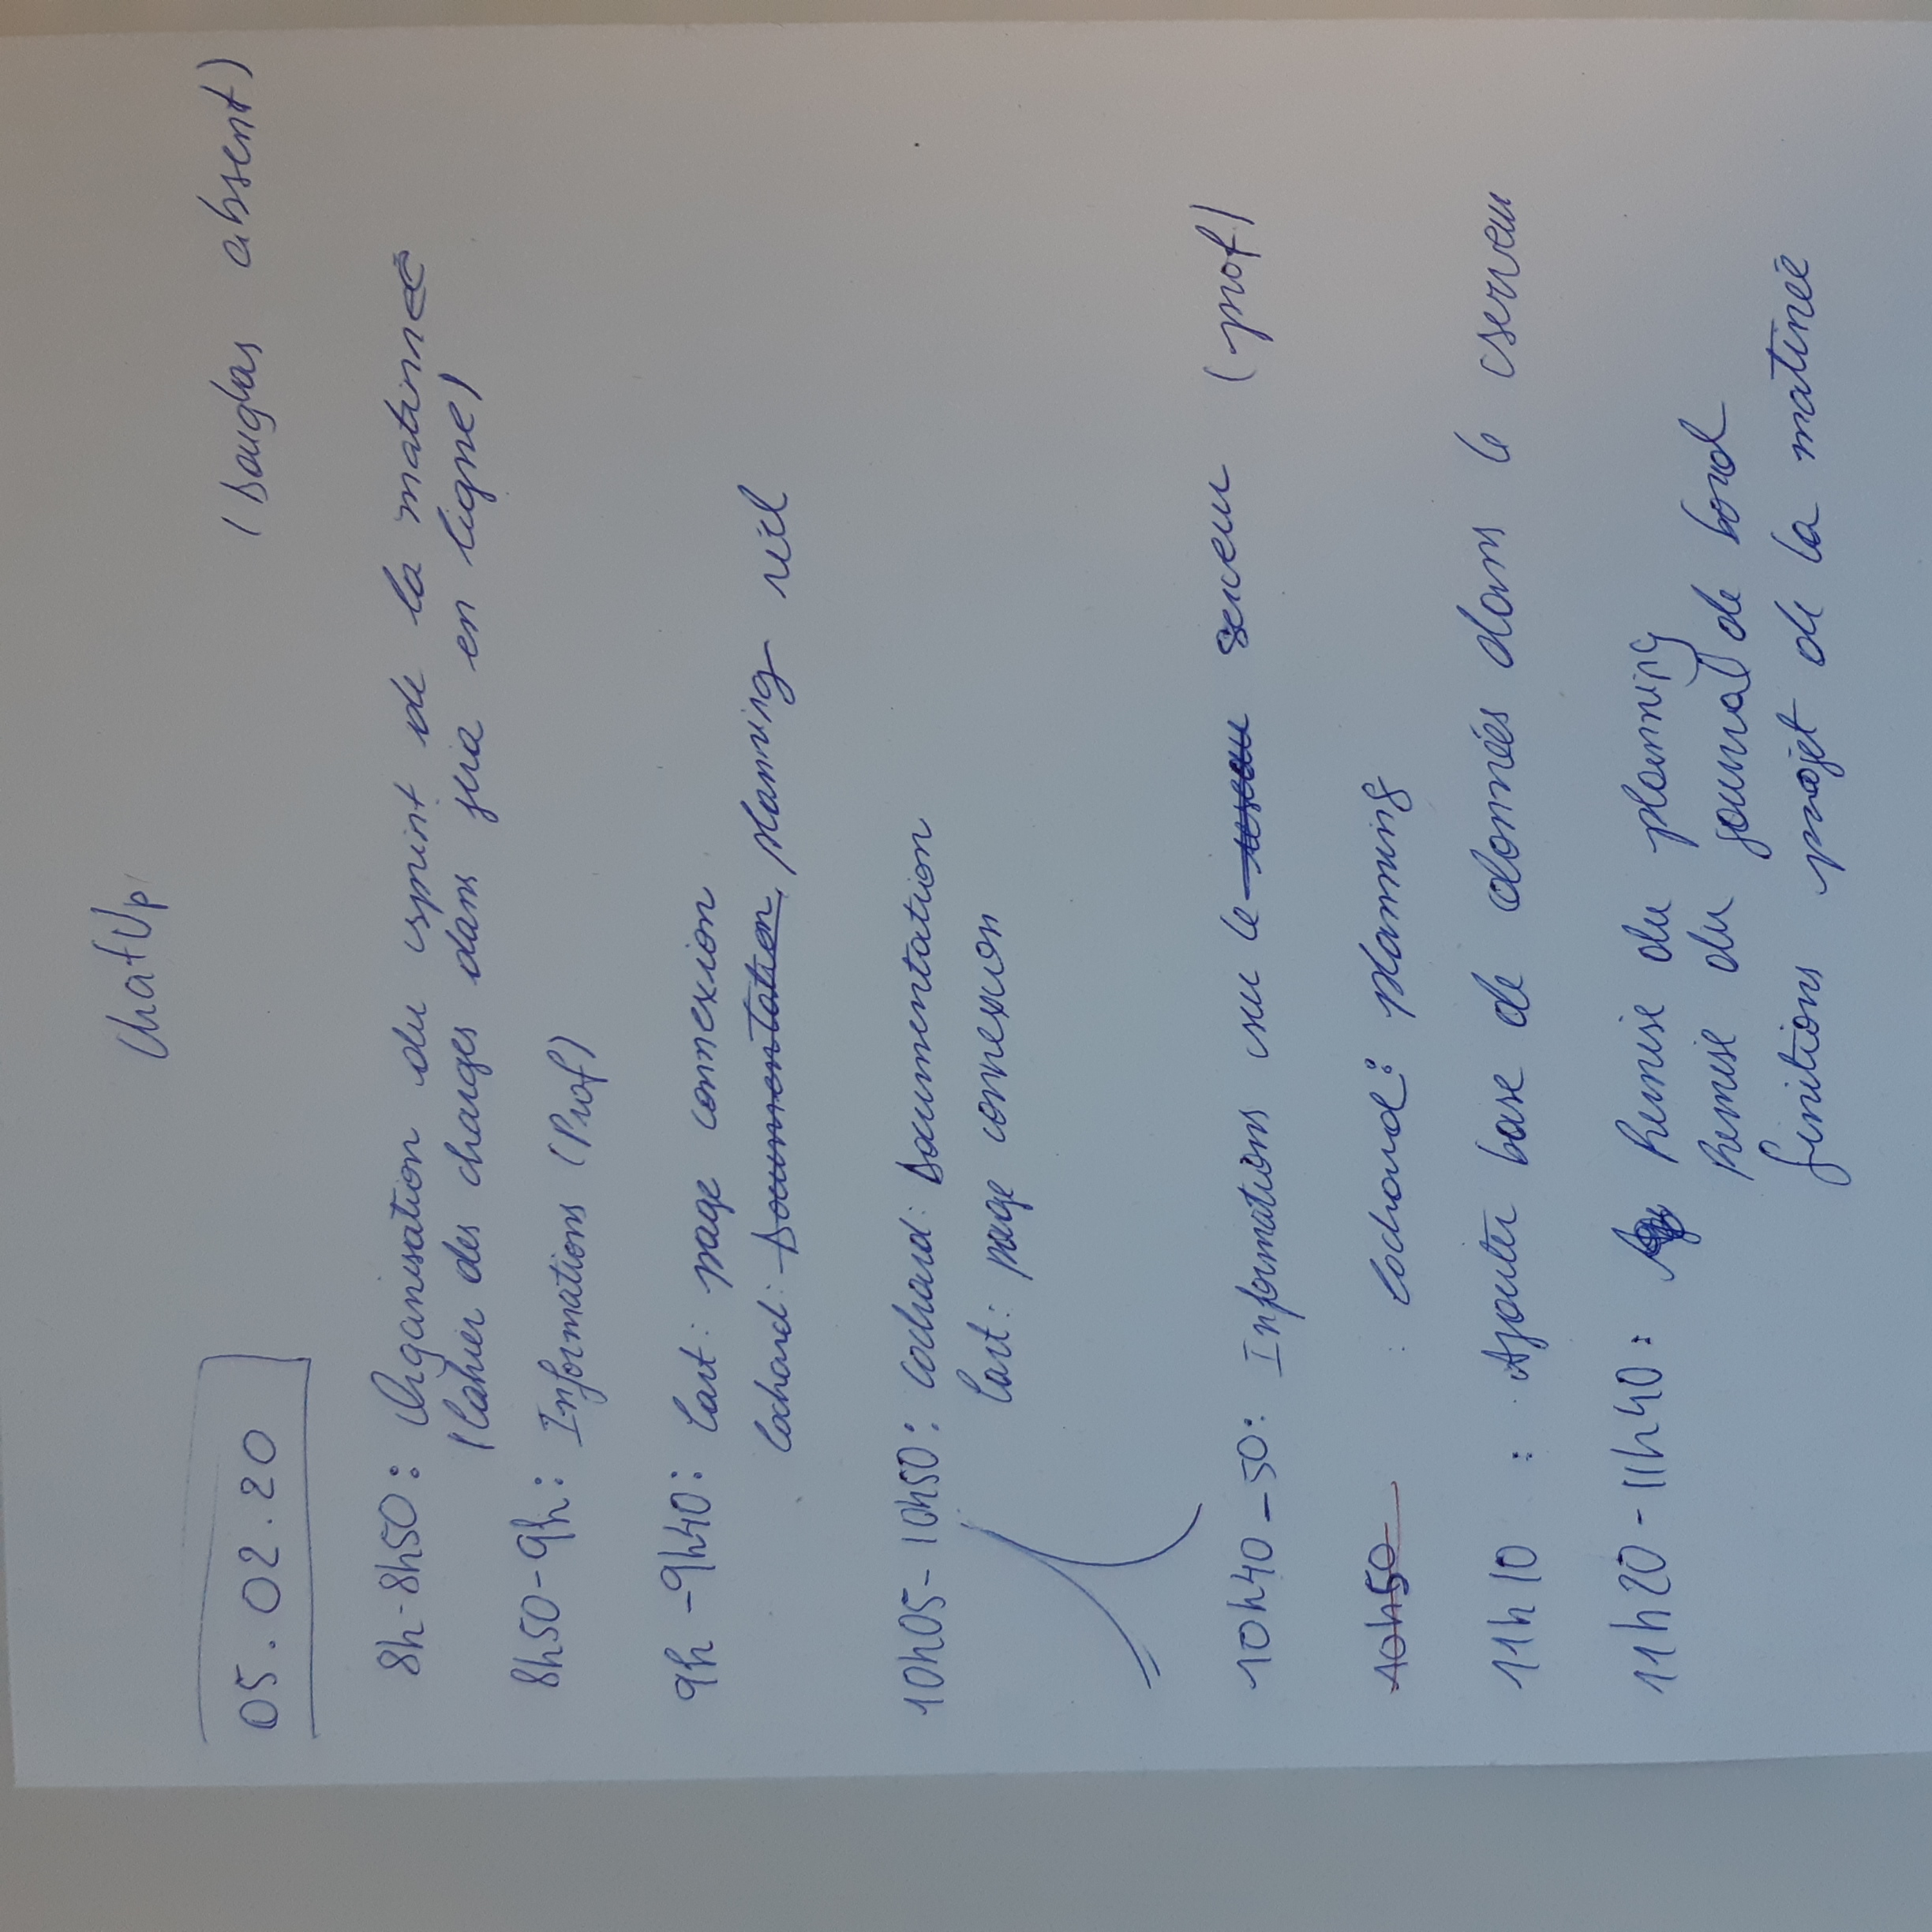 ChatUp
05.02.20
(Douglas absent)
8h-8h50: Organisation du sprint de la matinnée
(Cahier des charges dans jira en ligne)
8h50-9h: Informations (Prof)
9h-9h40: Cart: page connexion
Cochard: Documentation planning réel
10h05-10h50: Cochard: Documentation
Cart: page connexion
10h40-50: Informations sur le reseau serveur (prof)
10h50 : Cochard: planning
11h10 : Ajouter base de données dans le serveur
11h20-11h40: Remise du planning
Remise du journal de bord
finitions projet de la matinée